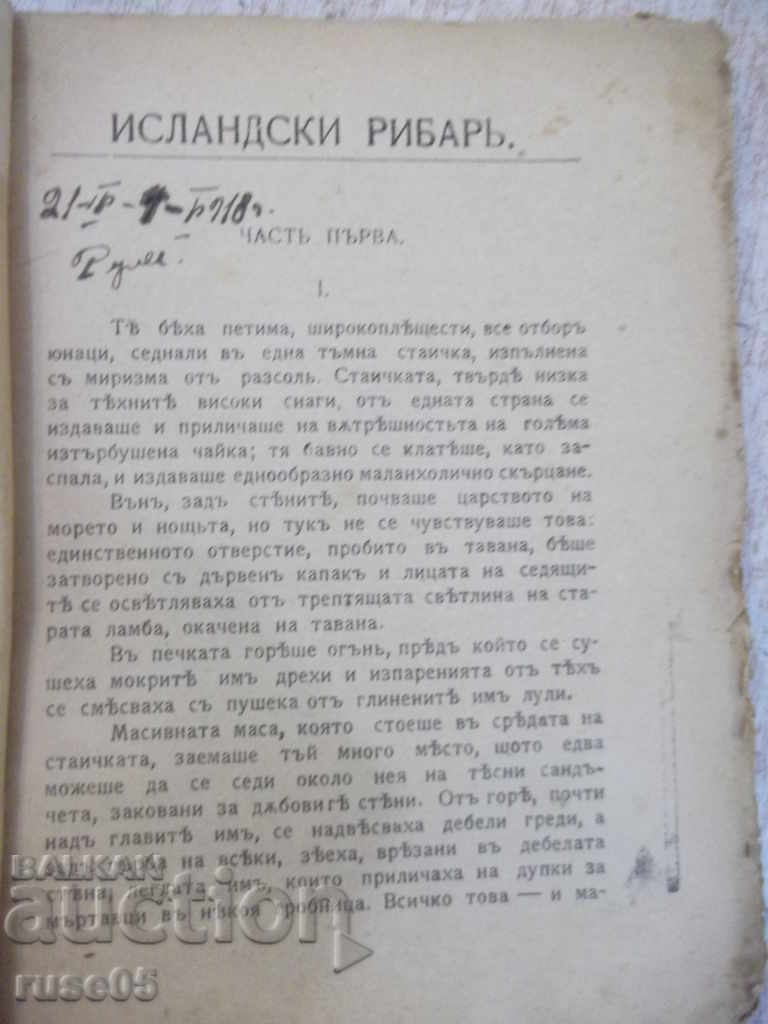 ИСЛАНДСКИ РИБАРЬ.
ЧАСТЬ ПЪРВА.
I.
Тѣ бѣха петима, широкоплѣщести, все отборъ
юнаци, седнали въ една тъмна стаичка, изпълнена
съ миризма отъ разсоль. Стаичката, твърдѣ низка
за тѣхнитѣ високи снаги, отъ едната страна се
издаваше и приличаше на вѫтрѣшностьта на голѣма
изтърбушена чайка; тя бавно се клатѣше, като за-
спала, и издаваше еднообразно маланхолично скърцане.
Вънъ, задъ стѣнитѣ, почваше царството на
морето и нощьта, но тукъ не се чувствуваше това:
единственното отверстие, пробито въ тавана, бѣше
затворено съ дървенъ капакъ и лицата на седящи-
тѣ се освѣтляваха отъ трептящата свѣтлина на ста-
рата ламба, окачена на тавана.
Въ печката горѣше огънь, прѣдъ който се су-
шеха мокритѣ имъ дрехи и изпаренията отъ тѣхъ
се смѣсваха съ пушека отъ глиненитѣ имъ лули.
Масивната маса, която стоеше въ срѣдата на
стаичката, заемаше тъй много мѣсто, щото едва
можеше да се седи около нея на тѣсни сандъ-
чета, заковани за дѫбовитѣ стѣни. Отъ горѣ, почти
надъ главитѣ имъ, се надвѣсваха дебели греди, а
на всѣки, зѣеха, врѣзани въ дебелата
стѣна, легдата имъ, които приличаха на дупки за
мъртавци въ нѣкоя гробница. Всичко това — и ма-
BALKAN
auction
ruse05